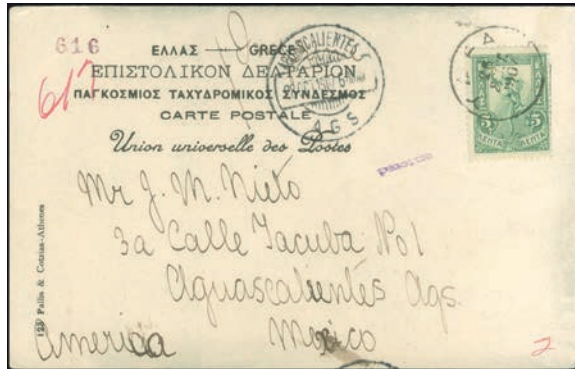 616
617
ΕΛΛΑΣ — GRECE
ΕΠΙΣΤΟΛΙΚΟΝ ΔΕΛΤΑΡΙΟΝ
ΠΑΓΚΟΣΜΙΟΣ ΤΑΧΥΔΡΟΜΙΚΟΣ ΣΥΝΔΕΣΜΟΣ
CARTE POSTALE
Union universelle des Postes
AGUASCALIENTES
AGS
5 5
ΛΕΠΤΑ ΛΕΠΤΑ
Mr J. M. Nieto
3a Calle Tacuba No 1
Aguascalientes Ags.
America Mexico
123 Pallis & Cotzias-Athenes
2